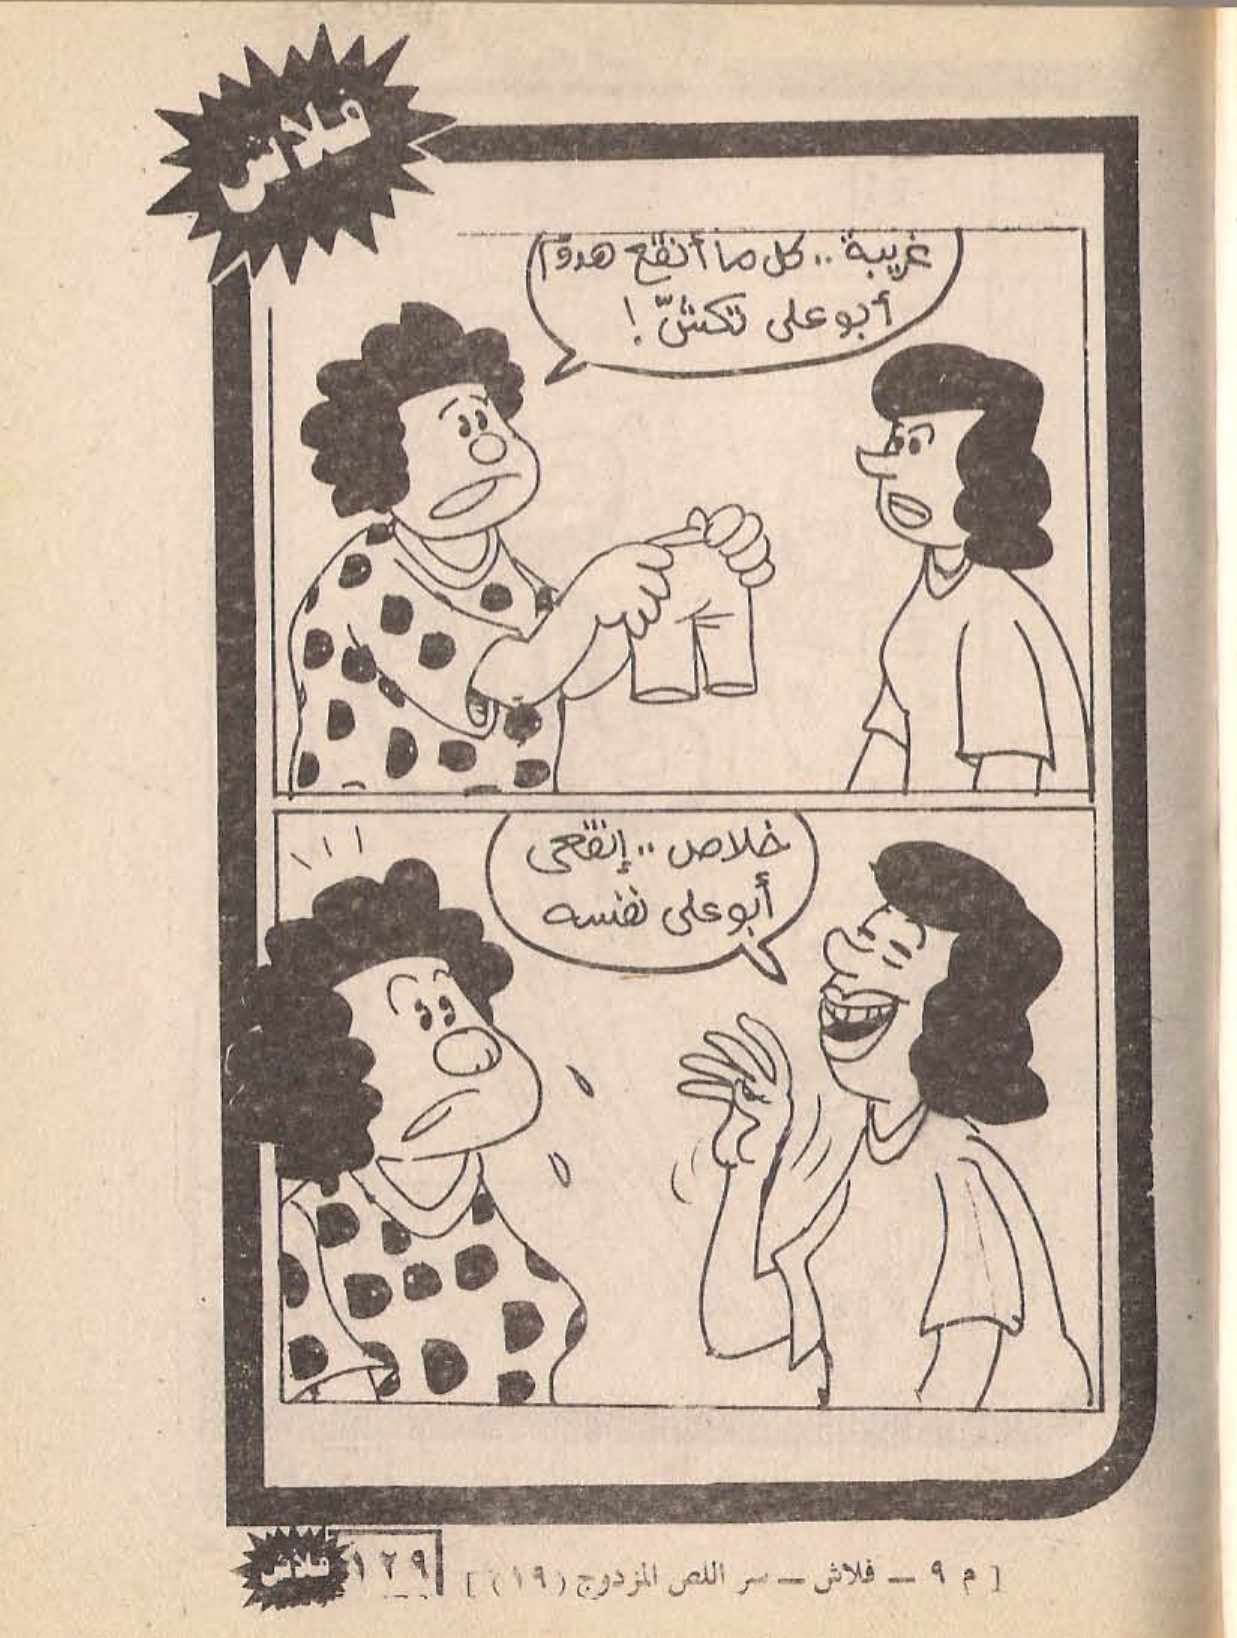 فلاش
غريبة .. كل ما أنقع هدوم
أبو على تكشّ !
خلاص .. إنقعى
أبو على نفسه
[ م ٩ ــ فلاش ــ سر اللص المزدوج (١٩) ]
١٢٩
فلاش